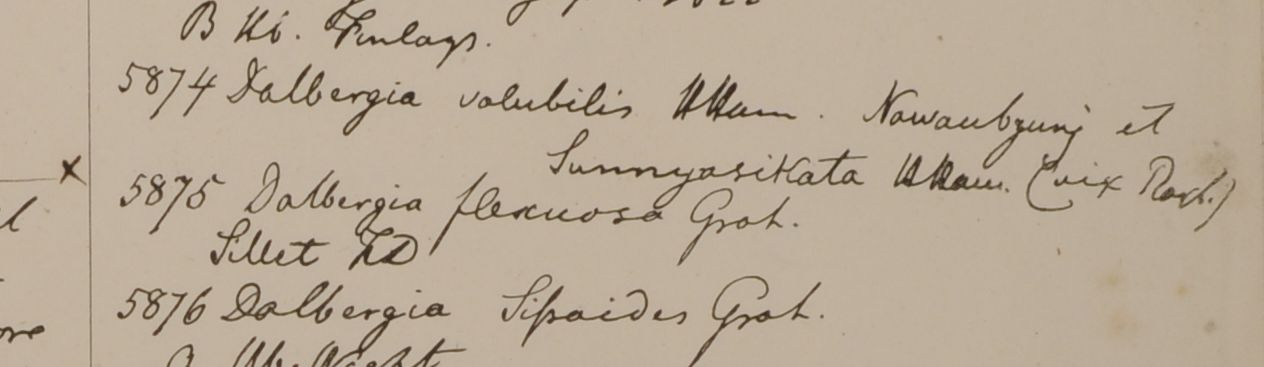 B Hb. Finlays.
5874 Dalbergia volubilis HHam. Nawaubgunj et
Sunnyasikata HHam. (vix Roxb.)
5875 Dalbergia flexuosa Grah.
Sillet FD
5876 Dalbergia Sissoides Grah.
Hb. Wight